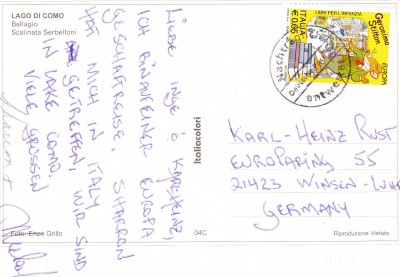 LAGO DI COMO
Bellagio
Scalinata Serbelloni
LIEBE INGE & KARL-HEINZ,
ICH BIN AUF EINER EUROPA
GESCHÄFTREISE. SHARRON
HAT MICH IN ITALY
GETREFFEN. WIR SIND
IN LAKE COMO.
VIELE GRÜSSEN
Foto: Enzo Grillo
Italiacolori
04C
LIBRI PER L'INFANZIA
Geronimo
Stilton
ITALIA
€ 0,65
EUROPA
KARL-HEINZ RUST
EUROPARING 55
21423 WINSEN-LUHE
GERMANY
Riproduzione Vietata